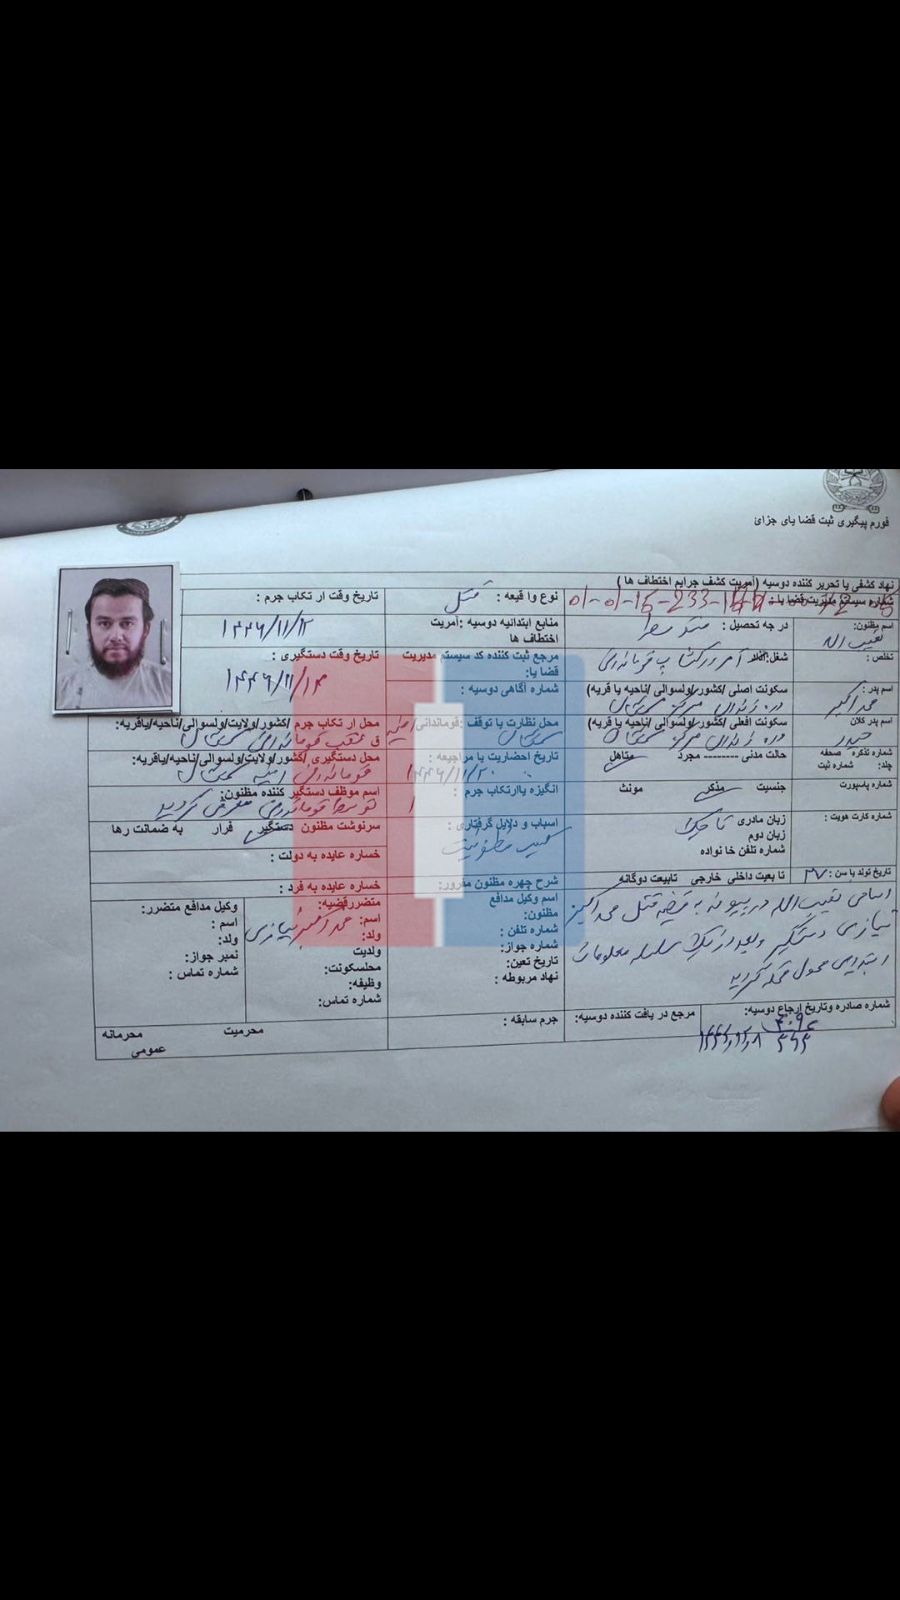 فورم پیگیری ثبت قضا یای جزائ
نهاد کشفی یا تحریر کننده دوسیه (آمریت کشف جرایم اختطاف ها )
اسم مظنون: نقیب الله
در جه تحصیل :
نوع وا قیعه : قتل
تاریخ وقت ار تکاب جرم :
۱۴۴۶/۱۱/۱۲
منابع ابتدائیه دوسیه :آمریت اختطاف ها
تخلص :
مرجع ثبت کننده کد سیستم مدیریت قضا یا:
تاریخ وقت دستگیری :
۱۴۴۶/۱۱/۱۴
اسم پدر : محمد اکبر
سکونت اصلی /کشور/ولسوالی /ناحیه یا قریه)
شماره آگاهی دوسیه :
اسم پدر کلان حیدر
سکونت افعلی /کشور/ولسوالی /ناحیه یا قریه)
محل نظارت یا توقف :قوماندانی امنیه
محل ار تکاب جرم /کشور/ولایت/ولسوالی/ناحیه/یاقریه:
شماره تذکره صفحه
جلد: شماره ثبت
حالت مدنی -------- مجرد متاهل
تاریخ احضاریت یا مراجیعه :
۱۴۴۶/۱۱/۲۰
محل دستگیری /کشور/ولایت/ولسوالی/ناحیه/یاقریه:
قوماندانی امنیه
شماره پاسپورت
جنسیت مذکر مونث
انگیزه یاارتکاب جرم :
اسم موظف دستگیر کننده مظنون:
توسط قوماندانی معرفی گردید
شماره کارت هویت :
زبان مادری تاجک
زبان دوم
شماره تلفن خا نواده
اسباب و دلایل گرفتاری :
سرنوشت مظنون دستگیر فرار به ضمانت رها
خساره عایده به دولت :
تاریخ تولد یا سن : ۲۷
تا بعیت داخلی خارجی تابیعت دوگانه
شرح چهره مظنون مفرور:
خساره عایده به فرد :
اسم وکیل مدافع مظنون:
شماره تلفن :
شماره جواز:
تاریخ تعین:
نهاد مربوطه :
متضررقضیه:
اسم: محمد اکبر نیازی
ولد:
ولدیت
محلسکونت:
وظیفه:
شماره تماس:
وکیل مدافع متضرر:
اسم :
ولد:
نمبر جواز:
شماره تماس :
اسامی نقیب الله در پیوند به قضیه قتل محمد اکبر
نیازی دستگیر وبعد از یک سلسله معلومات
ابتدایی محول محکمه گردید
شماره صادره وتاریخ ارجاع دوسیه:
مرجع در یافت کننده دوسیه:
جرم سابقه :
محرمیت محرمانه
عمومی